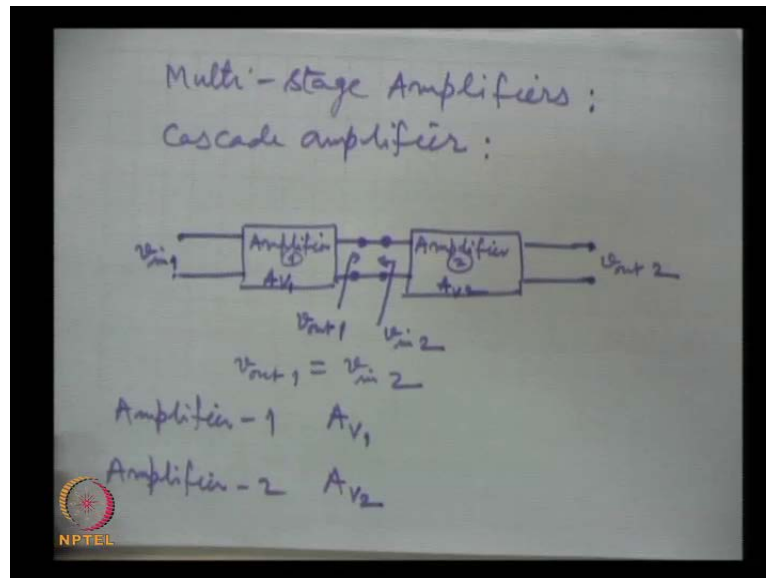 Multi-stage Amplifiers :
Cascade amplifier :
Amplifier Amplifier
1 2
vin1 vout 2
AV1 AV2
vout 1 vin 2
vout 1 = vin 2
Amplifier - 1 AV1
Amplifier - 2 AV2
NPTEL